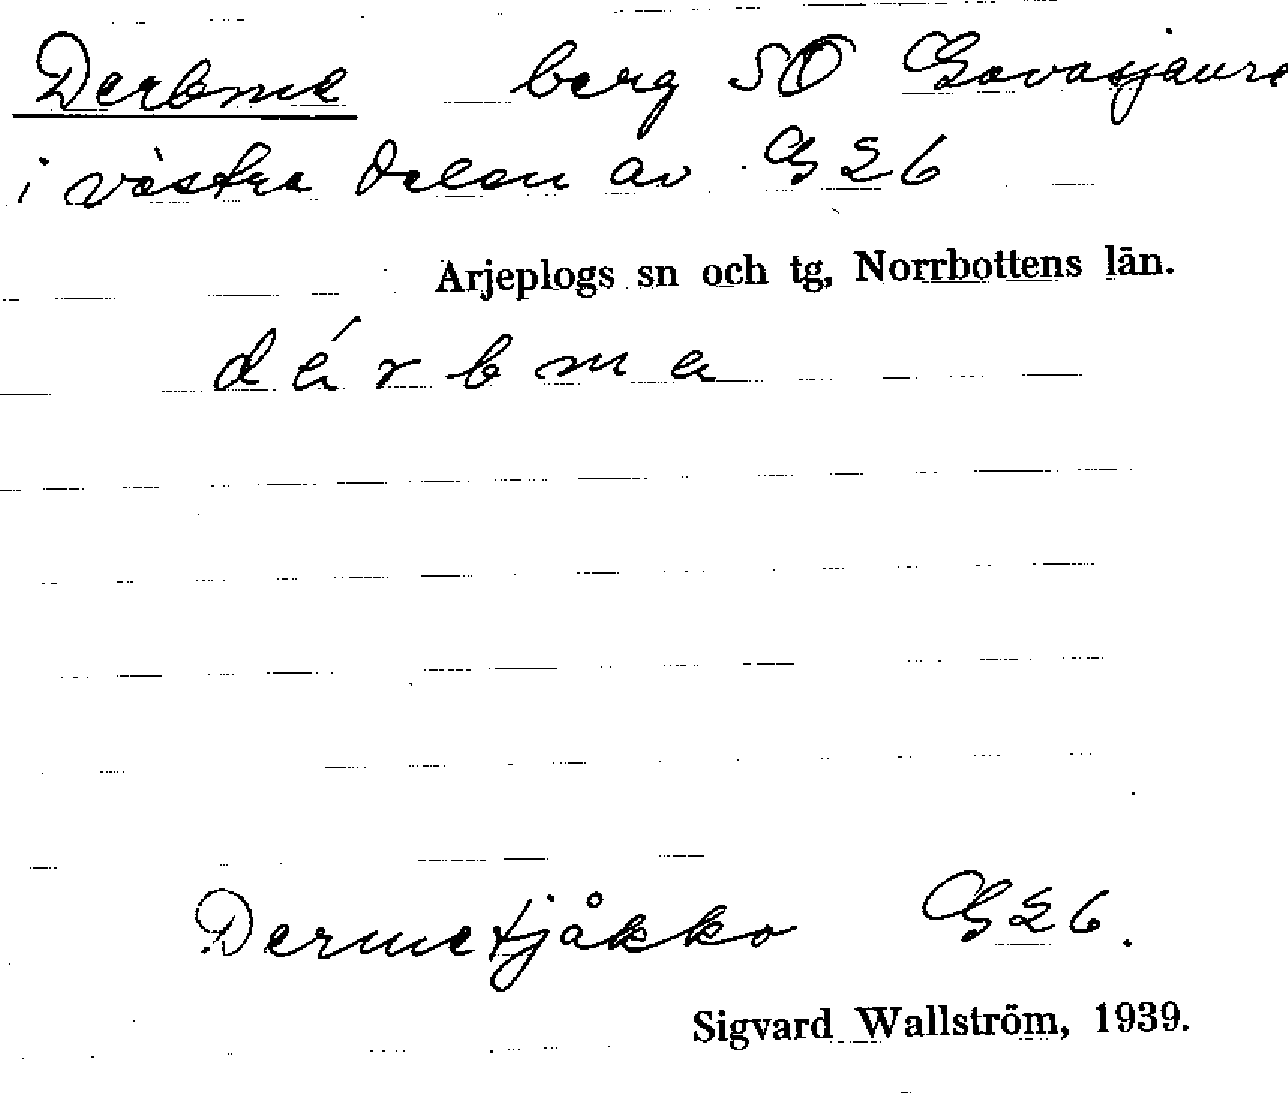 Derbme berg SO Gavasjaure
i västra delen av G 26
Arjeplogs sn och tg, Norrbottens län.
dérbma
Dermetjåkko G 26.
Sigvard Wallström, 1939.